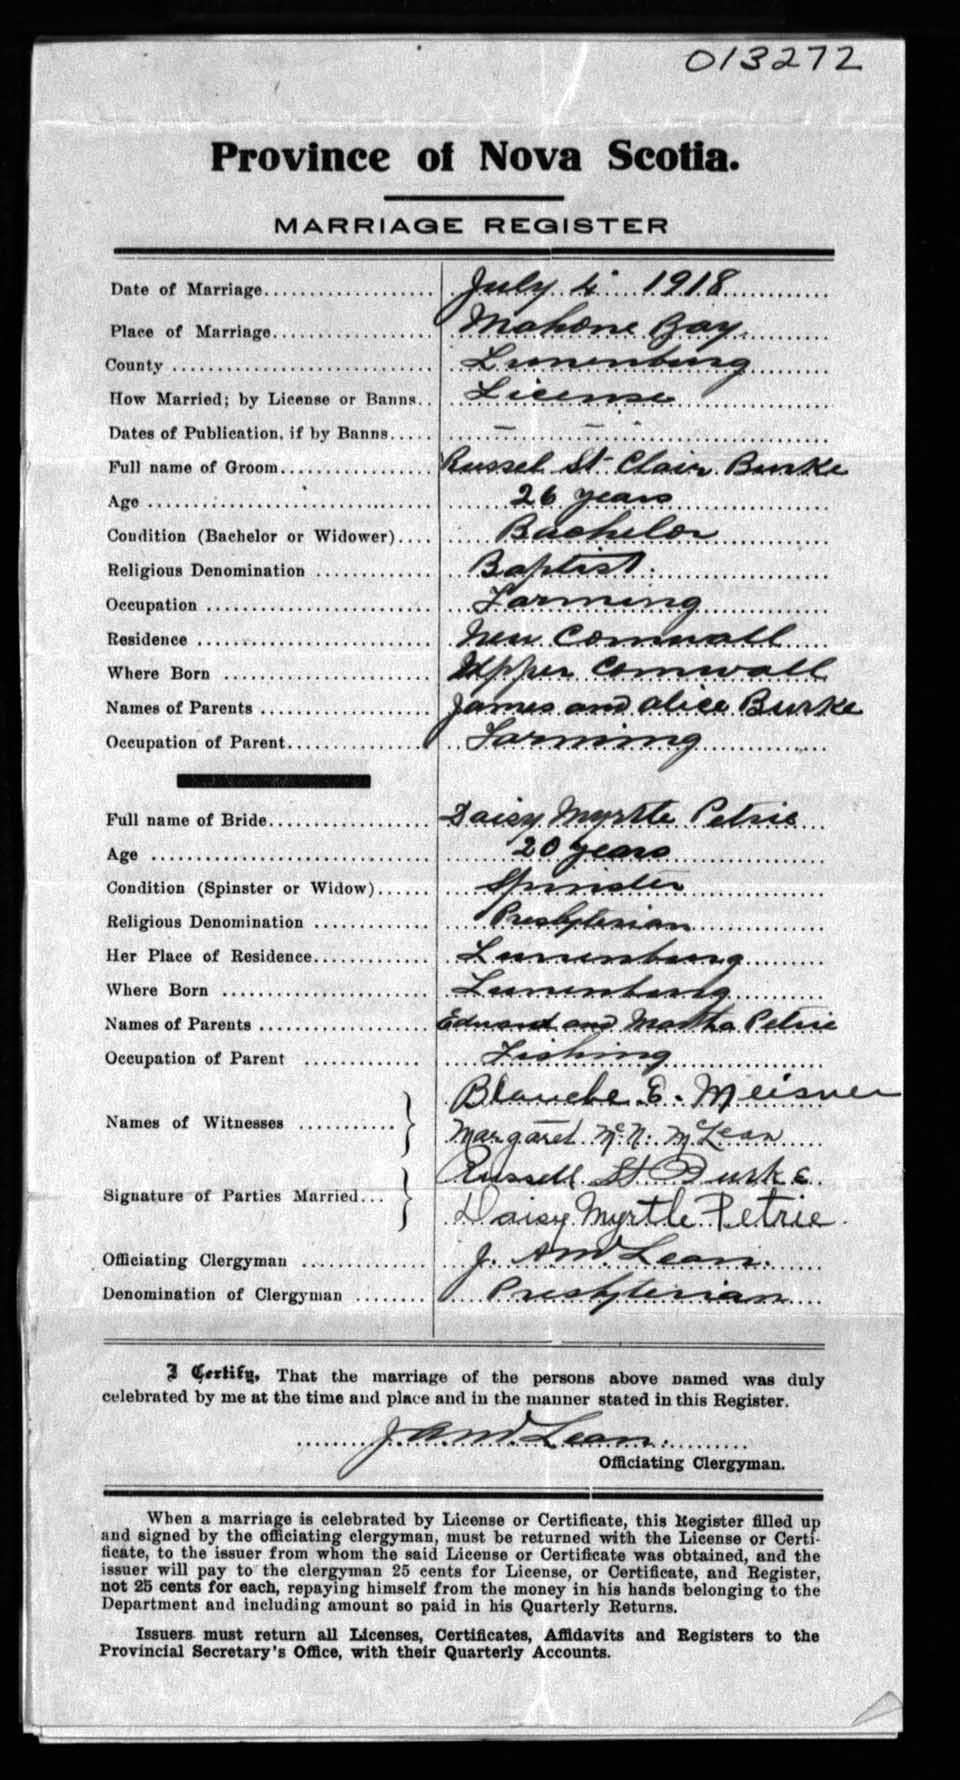 013272
Province of Nova Scotia.
MARRIAGE REGISTER
Date of Marriage.................... July 4 1918
Place of Marriage................... Mahone Bay.
County .............................. Lunenburg
How Married; by License or Banns.. License
Dates of Publication, if by Banns..... — —
Full name of Groom................. Russel St Clair Burke
Age ................................. 26 years
Condition (Bachelor or Widower).... Bachelor
Religious Denomination ............. Baptist.
Occupation .......................... Farming
Residence ........................... New Cornwall
Where Born ........................ Upper Cornwall
Names of Parents ................... James and Alice Burke
Occupation of Parent................ Farming
Full name of Bride.................. Daisy Myrtle Petrie
Age ................................ 20 years
Condition (Spinster or Widow)...... Spinster
Religious Denomination ............. Presbyterian
Her Place of Residence............. Lunenburg
Where Born ........................ Lunenburg
Names of Parents ................... Edward and Martha Petrie
Occupation of Parent ............. Fishing
Blanche E. Meisner
Names of Witnesses ...........
Margaret McN. McLean
Russell St. Burke
Signature of Parties Married...
Daisy Myrtle Petrie.
Officiating Clergyman .............. J. A. McLean.
Denomination of Clergyman ........ Presbyterian
I Certify, That the marriage of the persons above named was duly
celebrated by me at the time and place and in the manner stated in this Register.
J. A. McLean.
Officiating Clergyman.
When a marriage is celebrated by License or Certificate, this Register filled up
and signed by the officiating clergyman, must be returned with the License or Certi-
ficate, to the issuer from whom the said License or Certificate was obtained, and the
issuer will pay to the clergyman 25 cents for License, or Certificate, and Register,
not 25 cents for each, repaying himself from the money in his hands belonging to the
Department and including amount so paid in his Quarterly Returns.
Issuers must return all Licenses, Certificates, Affidavits and Registers to the
Provincial Secretary's Office, with their Quarterly Accounts.